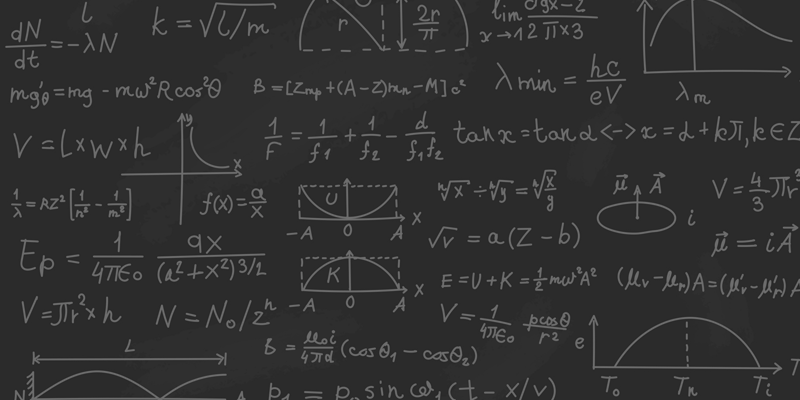 dN/dt = -λN
k = √l/m
r
2r/π
lim x→1
mg'θ = mg - mω²R cos²θ
B = [Zmp + (A-Z)mn - M] c²
λmin = hc/eV
λm
V = L×w×h
y
x
1/F = 1/f1 + 1/f2 - d/f1f2
tan x = tan α <-> x = α + kπ, k ∈ Z
1/λ = RZ² [1/n² - 1/m²]
f(x) = a/x
U
-A 0 A x
ⁿ√x ÷ ⁿ√y = ⁿ√x/y
μ⃗ A⃗
i
V = 4/3 πr³
√v = a(Z - b)
μ⃗ = iA⃗
Ep = 1/4πε₀ qx/(a²+x²)3/2
K
-A 0 A x
E = U + K = 1/2 mω²A²
(μv - μr) A = (μ'v - μ'r) A
V = πr² × h
N = N₀/2ⁿ
V = 1/4πε₀ pcosθ/r²
L
B = μ₀i/4πd (cosθ₁ - cosθ₂)
e
T₀ Tn Ti T
N A
p₁ = p₀ sin ω₁(t - x/v)